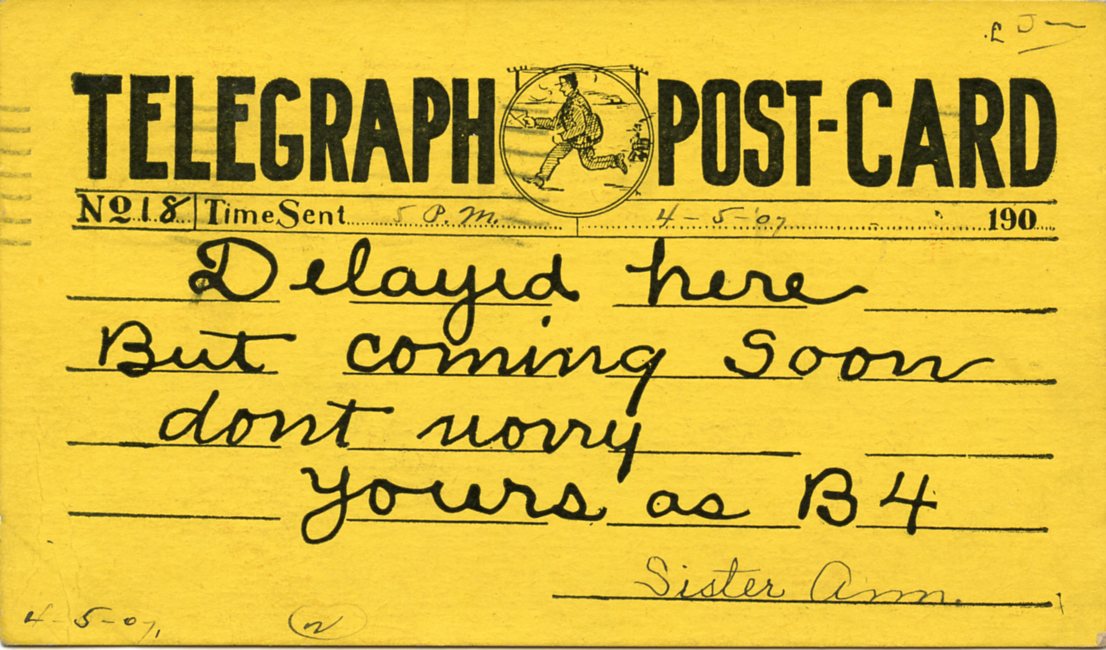 TELEGRAPH POST-CARD
No 18 Time Sent 5 P.M. 4-5-'07 190
Delayed here
But coming Soon
dont worry
Yours as B4
Sister Ann.
4-5-07.